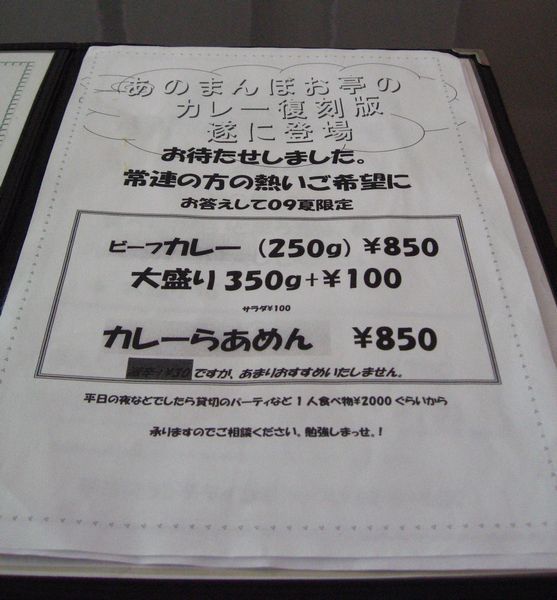 あのまんぼお亭の
カレー復刻版
遂に登場
お待たせしました。
常連の方の熱いご希望に
お答えして09夏限定
ビーフカレー（250g）¥850
大盛り350g+¥100
サラダ¥100
カレーらあめん ¥850
¥30ですが、あまりおすすめいたしません。
平日の夜などでしたら貸切のパーティなど1人食べ物¥2000ぐらいから
承りますのでご相談ください。勉強しまっせ。!